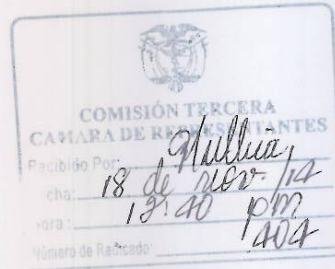 COMISIÓN TERCERA
CAMARA DE REPRESENTANTES
Recibido Por:
cha: 18 de nov. /14
ora: 12:40 pm
Número de Radicado: 404